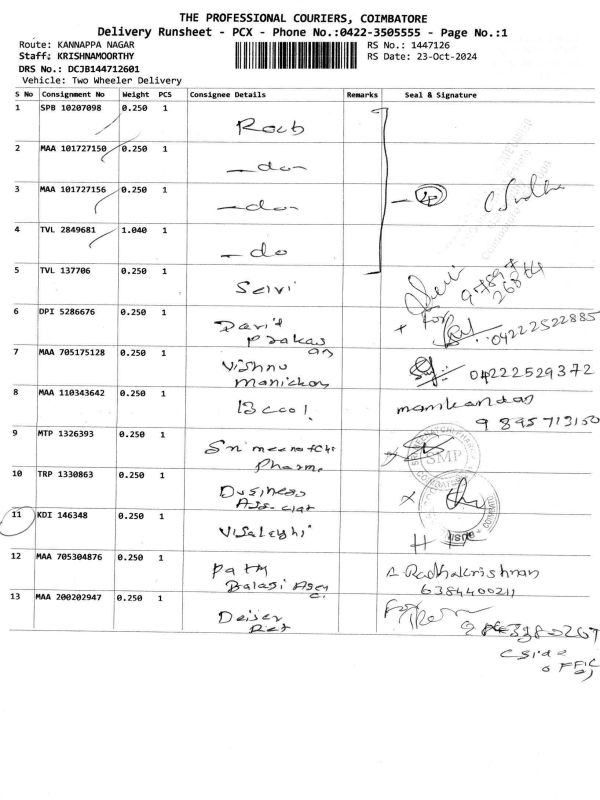 THE PROFESSIONAL COURIERS, COIMBATORE
Delivery Runsheet - PCX - Phone No.:0422-3505555 - Page No.:1
Route: KANNAPPA NAGAR RS No.: 1447126
Staff: KRISHNAMOORTHY RS Date: 23-Oct-2024
DRS No.: DCJB144712601
Vehicle: Two Wheeler Delivery
S No Consignment No Weight PCS Consignee Details Remarks Seal & Signature
1 SPB 10207098 0.250 1
2 MAA 101727150 0.250 1
-do-
3 MAA 101727156 0.250 1
-do-
4 TVL 2849681 1.040 1
-do
5 TVL 137706 0.250 1
Selvi
6 DPI 5286676 0.250 1
For
04222522885
7 MAA 705175128 0.250 1
Vishnu
Manickam
04222529372
8 MAA 110343642 0.250 1
manikandan
9895713150
9 MTP 1326393 0.250 1
Sri meenatchi
Pharma
SMP
10 TRP 1330863 0.250 1
Business
11 KDI 146348 0.250 1
12 MAA 705304876 0.250 1
Balaji Agen
A. Radhakrishnan
6384400211
13 MAA 200202947 0.250 1